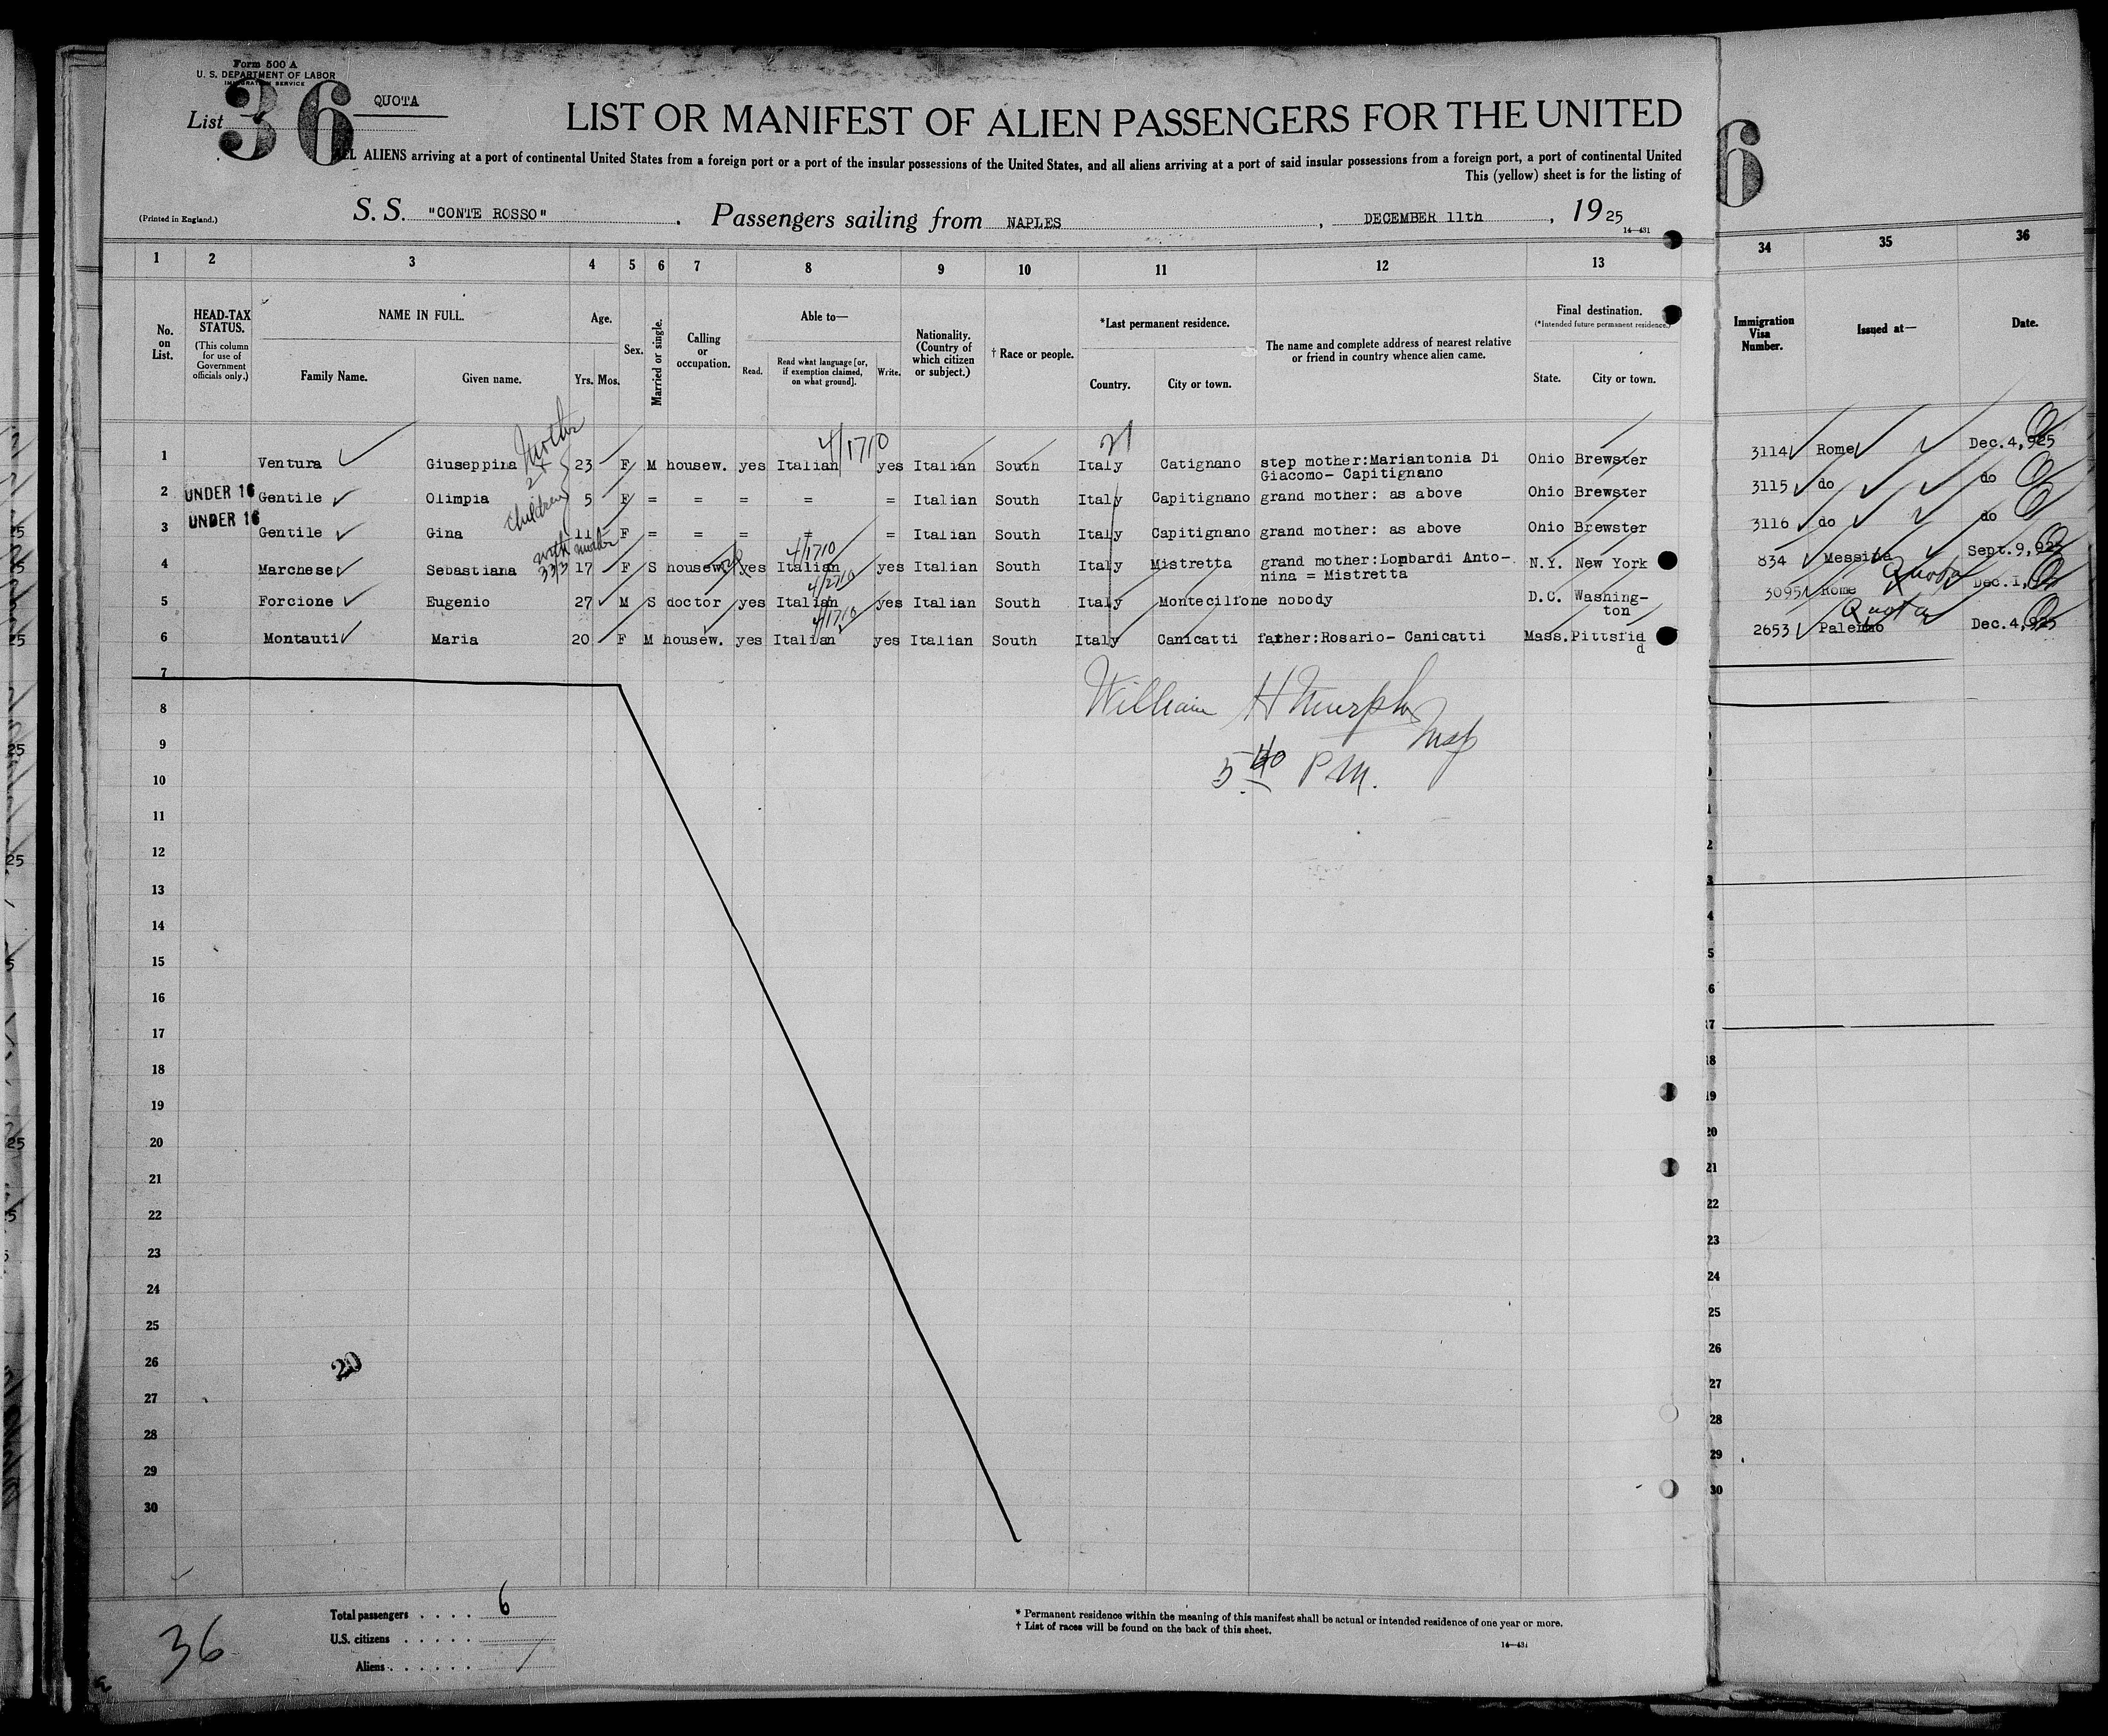 Form 500 A
U. S. DEPARTMENT OF LABOR
IMMIGRATION SERVICE
List 36 QUOTA
LIST OR MANIFEST OF ALIEN PASSENGERS FOR THE UNITED
ALL ALIENS arriving at a port of continental United States from a foreign port or a port of the insular possessions of the United States, and all aliens arriving at a port of said insular possessions from a foreign port, a port of continental United
This (yellow) sheet is for the listing of
(Printed in England.)
S. S. "CONTE ROSSO". Passengers sailing from NAPLES, DECEMBER 11th, 1925
14—431
6
1 2 3 4 5 6 7 8 9 10 11 12 13 34 35 36
No. on List.
HEAD-TAX STATUS.
(This column for use of Government officials only.)
NAME IN FULL.
Family Name. Given name.
Age.
Yrs. Mos.
Sex.
Married or single.
Calling or occupation.
Able to—
Read.
Read what language [or, if exemption claimed, on what ground].
Write.
Nationality. (Country of which citizen or subject.)
† Race or people.
*Last permanent residence.
Country. City or town.
The name and complete address of nearest relative or friend in country whence alien came.
Final destination.
(*Intended future permanent residence.)
State. City or town.
Immigration Visa Number.
Issued at—
Date.
Mother
2
children
with mother
33/3
4/1710
21
1 Ventura Giuseppina 23 F M housew. yes Italian yes Italian South Italy Catignano step mother:Mariantonia Di Giacomo- Capitignano Ohio Brewster 3114 Rome Dec.4,925
2 UNDER 16 Gentile Olimpia 5 F = = = = = Italian South Italy Capitignano grand mother: as above Ohio Brewster 3115 do do
3 UNDER 16 Gentile Gina 11 F = = = = = Italian South Italy Capitignano grand mother: as above Ohio Brewster 3116 do do
4/1710
4 Marchese Sebastiana 17 F S housew. yes Italian yes Italian South Italy Mistretta grand mother:Lombardi Anto-nina = Mistretta N.Y. New York 834 Messina Sept.9,925
4/2710
Quota
5 Forcione Eugenio 27 M S doctor yes Italian yes Italian South Italy Montecilfone nobody D.C. Washing-ton 3095 Rome Dec.1,
4/1710
Quota
6 Montauti Maria 20 F M housew. yes Italian yes Italian South Italy Canicatti father:Rosario- Canicatti Mass. Pittsfid 2653 Palermo Dec.4,925
7
8
9
10
11
12
13
14
15
16
17
18
19
20
21
22
23
24
25
26
27
28
29
30
William H Murphy
Insp
5 40 P.M.
20
36
Total passengers . . . . 6
U.S. citizens . . . . .
Aliens . . . . . .
* Permanent residence within the meaning of this manifest shall be actual or intended residence of one year or more.
† List of races will be found on the back of this sheet.
14—431